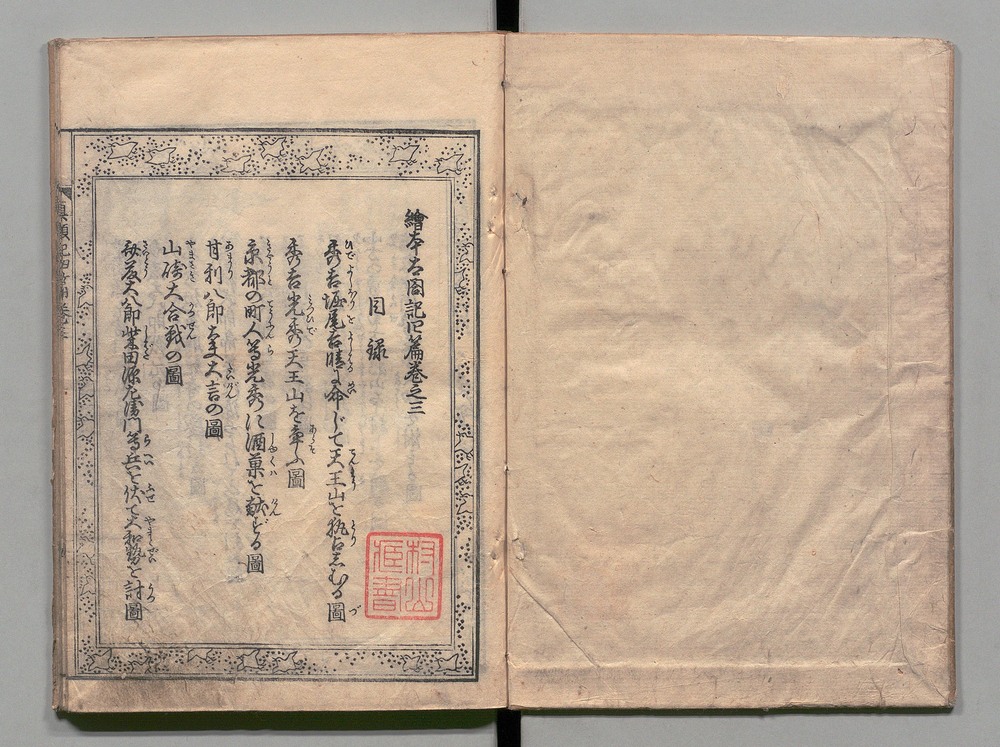 繪本太閤記四篇巻之三
目録
秀吉堀尾吉晴に命じて天王山を執占しむる圖
秀吉光秀天王山を争ふ圖
京都の町人等光秀に酒菓を献ずる圖
甘利八郎太夫大言の圖
山碕大合戦の圖
斎藤大八郎柴田源左衛門等兵を伏て大和勢を討圖